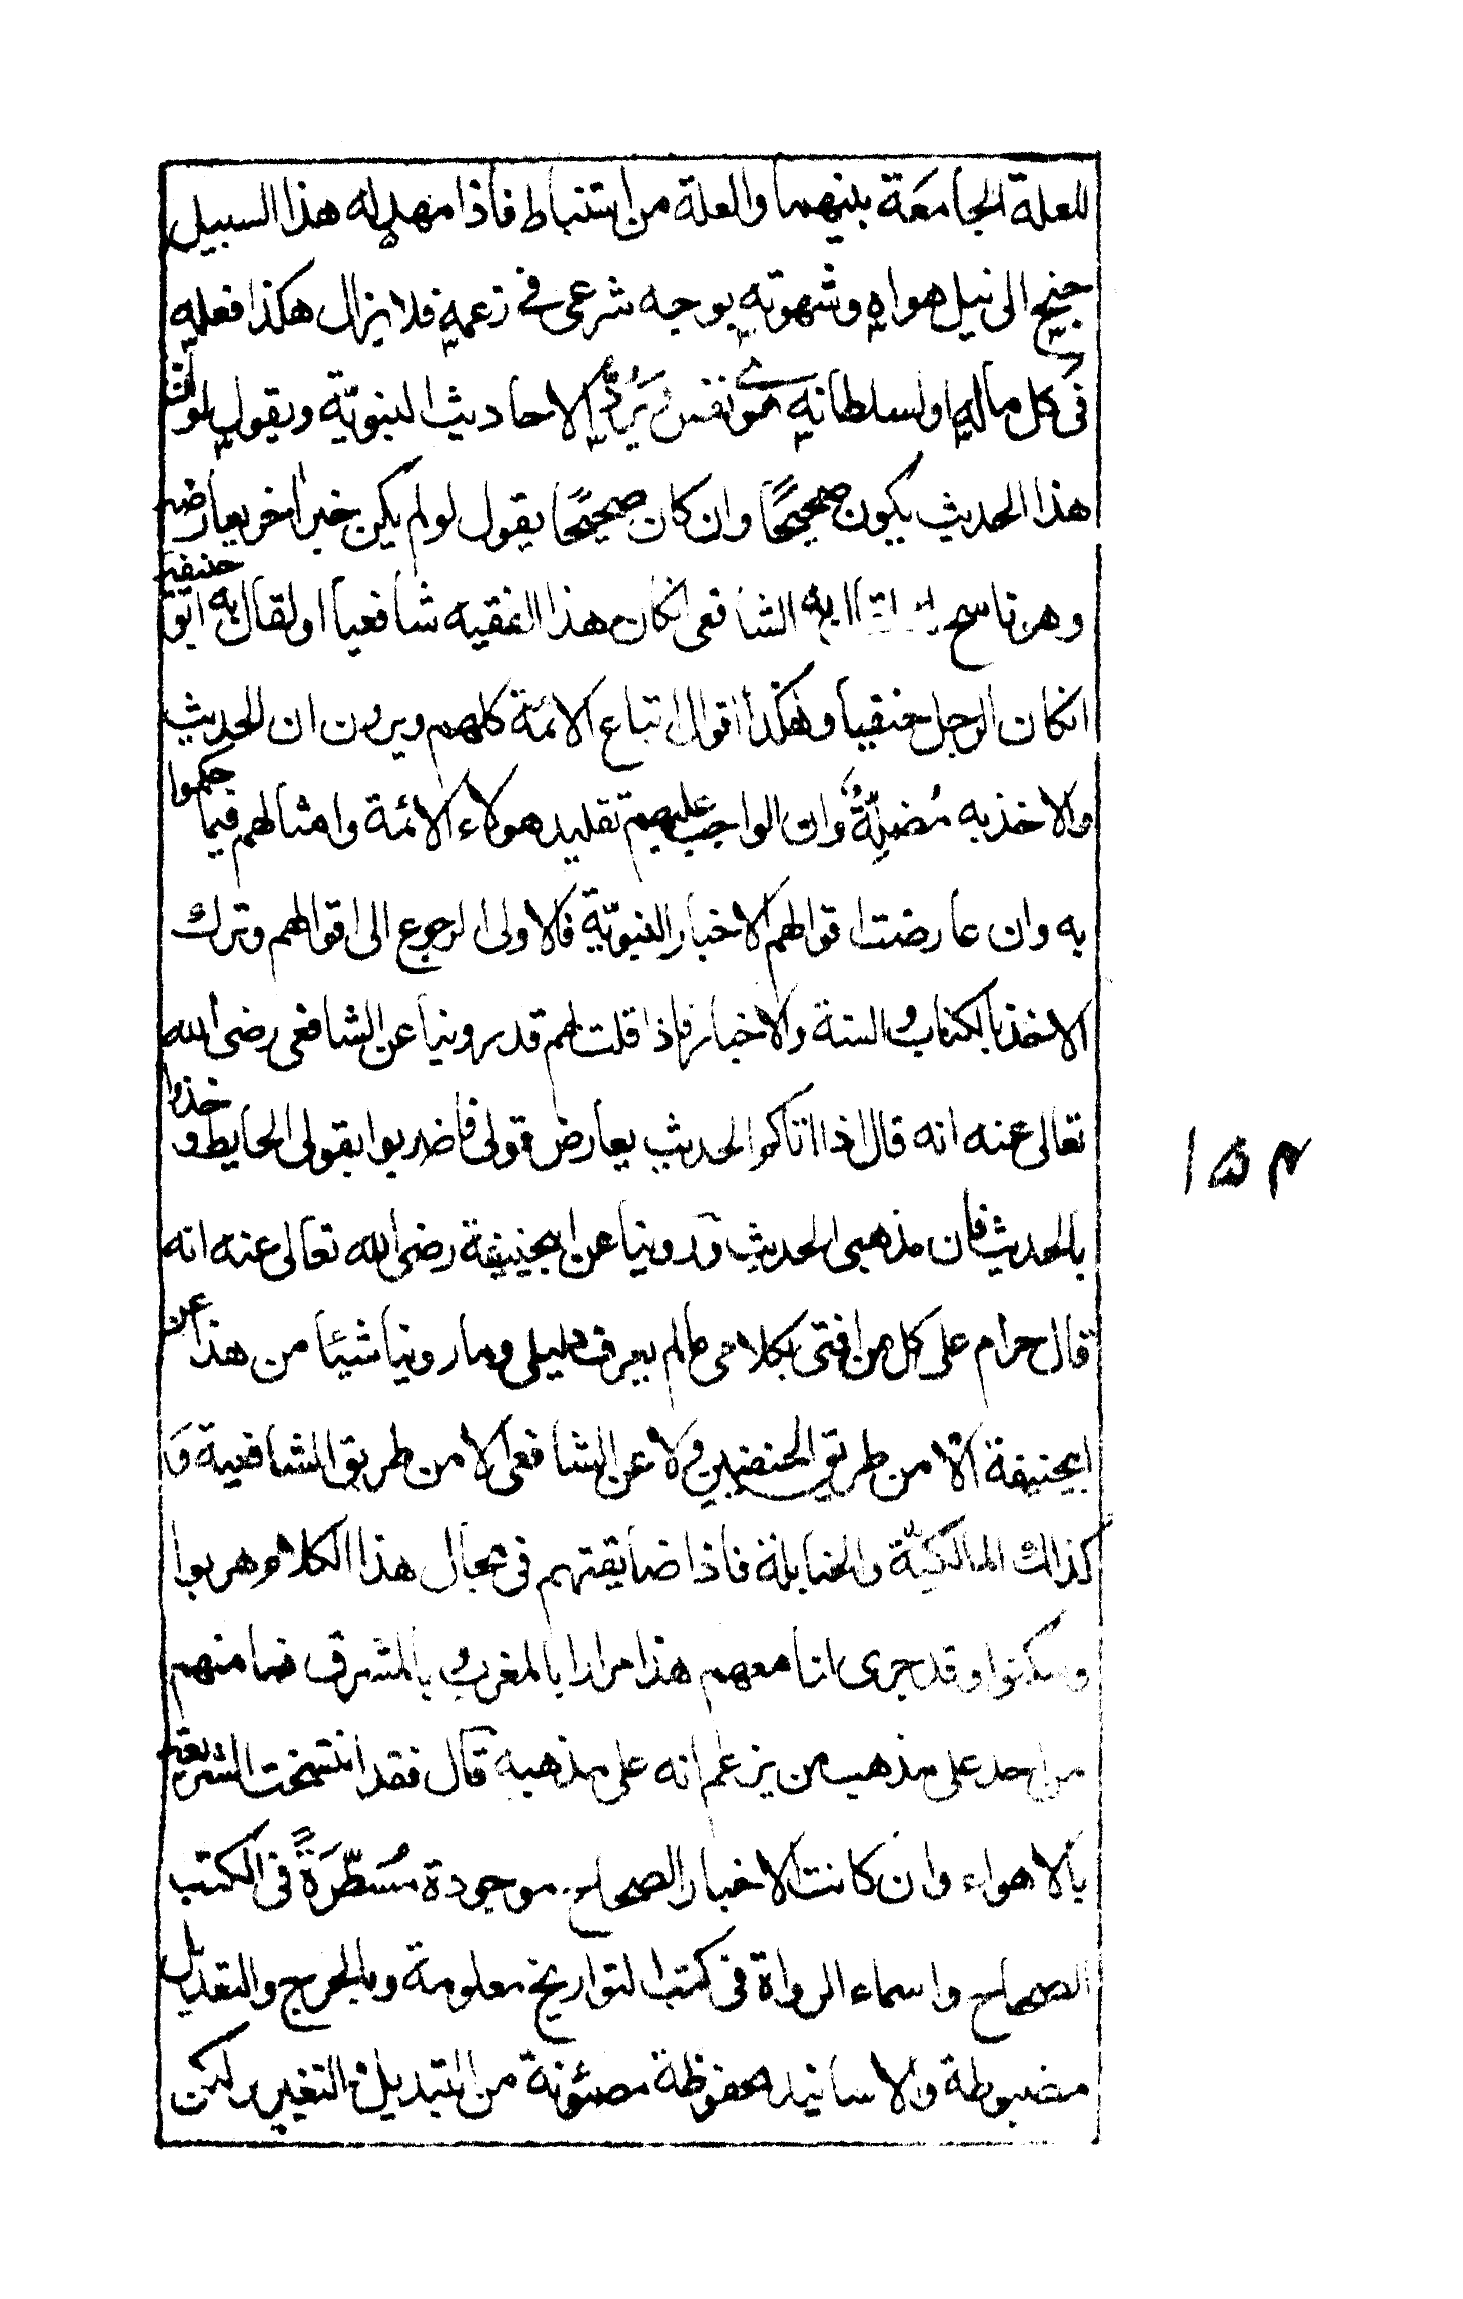 للعلة الجامعة بينهما والعلة من استنباط فاذا مهد له هذا السبيل
جنح الى نيل هواه وشهوته بوجه شرعى فى زعمه فلا يزال هكذا فعله
فى كل ماله اولسلطانه هوى نفس ويردّ الاحاديث النبويّة ويقول لو ان
هذا الحديث يكون صحيحًا وان كان صحيحًا يقول لو لم يكن خبر اخر يعارضه
وهو ناسخ به الشافعى انكان هذا الفقيه شافعيا او لقال به ابو حنيفة
انكان الرجل حنفيا وهكذا اقوال اتباع الائمة كلهم ويرون ان الحديث
والاخذ به مُضِلّةٌ وان الواجب عليهم تقليد هولاء الائمة وامثالهم فيما حكموا
به وان عارضت اقوالهم الاخبار النبويّة فالاولى الرجوع الى اقوالهم وترك
الاخذ بالكتاب والسنة والاخبار فاذا قلت لهم قد روينا عن الشافعى رضى الله
تعالى عنه انه قال اذا اتاكم الحديث يعارض قولى فاضربوا بقولى الحايط وخذوا
بالحديث فان مذهبى الحديث وروينا عن ابيحنيفة رضى الله تعالى عنه انه
قال حرام على كل من افتى بكلامى مالم يعرف دليلى وما روينا شيئا من هذا عن
ابيحنيفة الا من طريق الحنفيين ولا عن الشافعى الا من طريق الشافعية و
كذلك المالكيّة والحنابلة فاذا ضايقتهم فى مجال هذا الكلام هربوا
وسكتوا وقد جرى لنا معهم هذا مرارا بالمغرب وبالمشرق فما منهم
من احد على مذهب من يزعم انه على مذهبه قال فقد انتسخت الشريعة
بالاهواء وان كانت الاخبار الصحاح موجودة مُسَطّرَةً فى الكتب
الصحاح واسماء الرواة فى كتب التواريخ معلومة وبالجرح والتعديل
مضبوطة والاسانيد محفوظة مصئونة من التبديل والتغيير ولكن
١٥٣